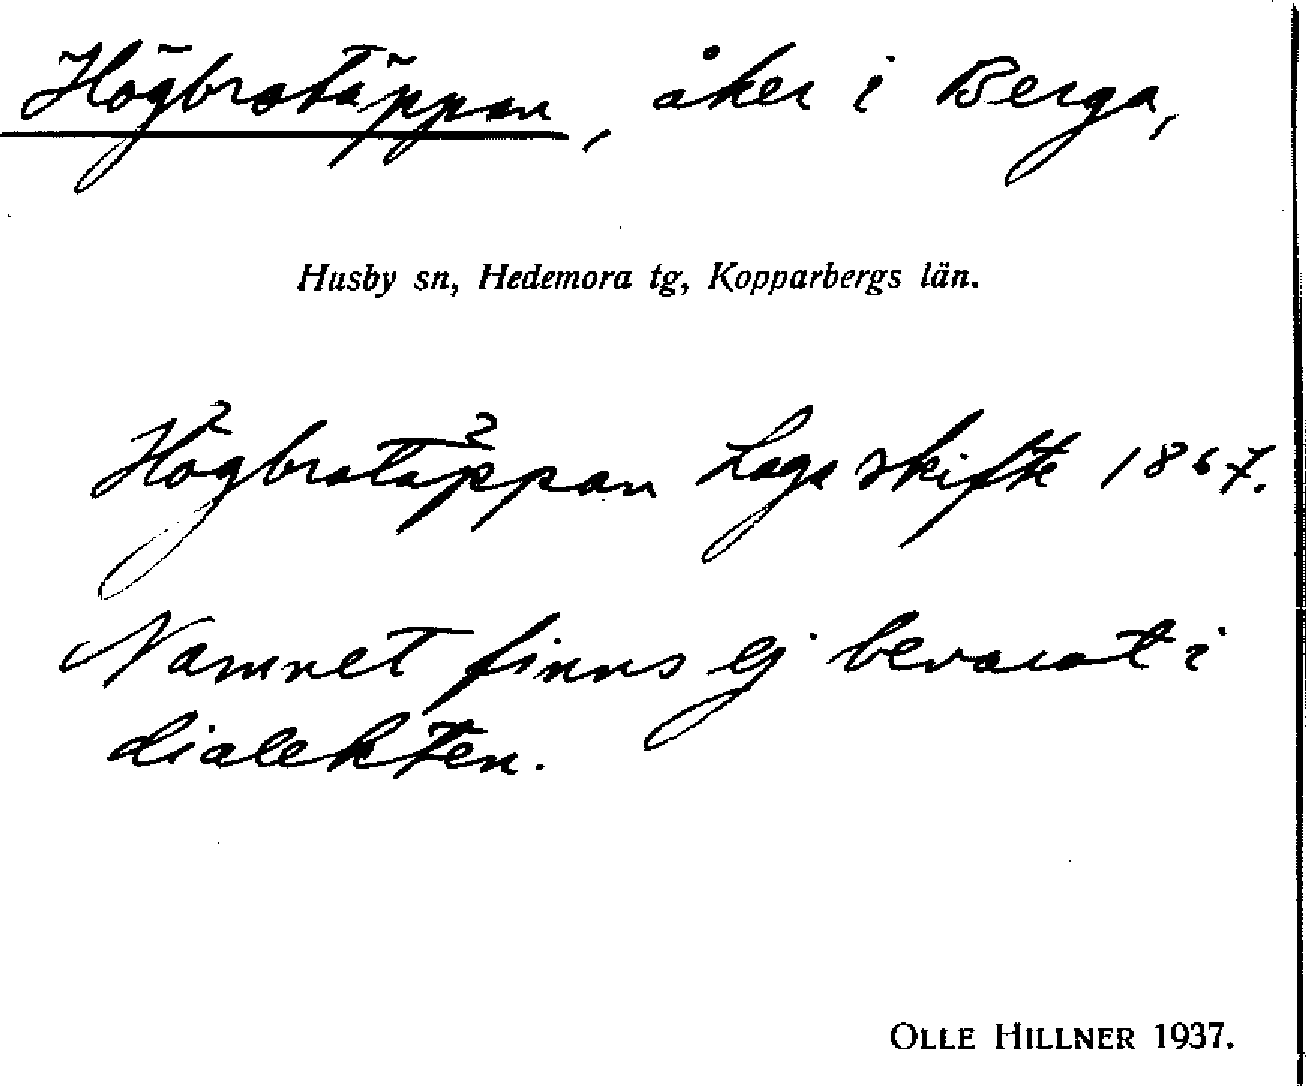 Högbrotäppan, åker i Berga,
Husby sn, Hedemora tg, Kopparbergs län.
Högbrotäppan Laga skifte 1867.
Namnet finns ej bevarat i
dialekten.
OLLE HILLNER 1937.